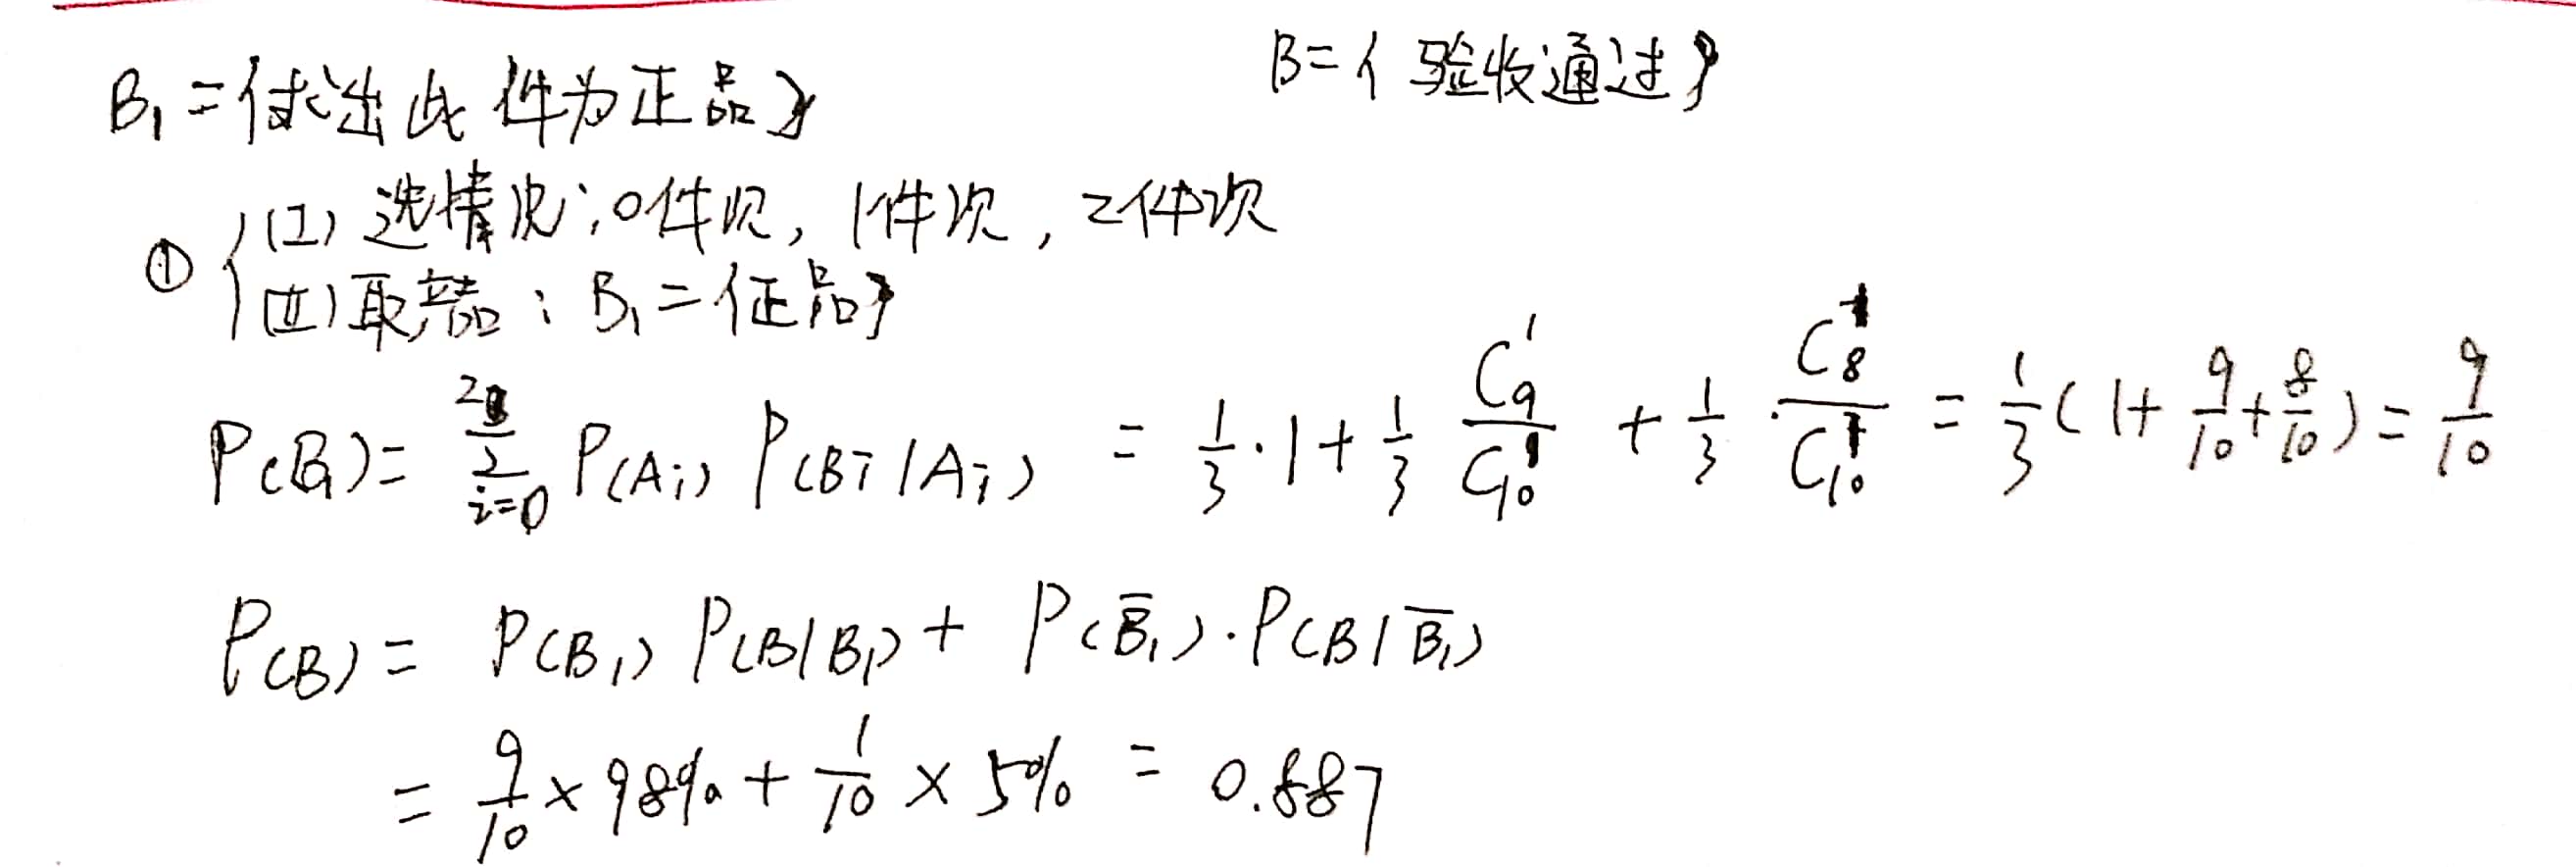 B₁={试出此件为正品}
B={验收通过}
① {(I) 选情况:0件次,1件次,2件次
(II) 取产品:B₁={正品}
P(B₁)=∑_{i=0}^{2} P(Aᵢ) P(Bᵢ|Aᵢ) = 1/3·1+1/3 C₉¹/C₁₀¹ + 1/3·C₈¹/C₁₀¹ = 1/3(1+9/10+8/10)=9/10
P(B)= P(B₁) P(B|B₁)+ P(B̄₁)·P(B|B̄₁)
= 9/10×98%+1/10×5% = 0.887